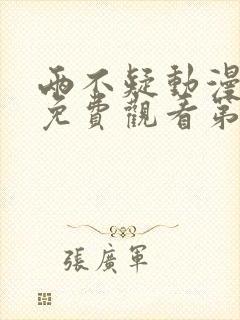 兩不疑動漫
免費觀看第
張廣軍